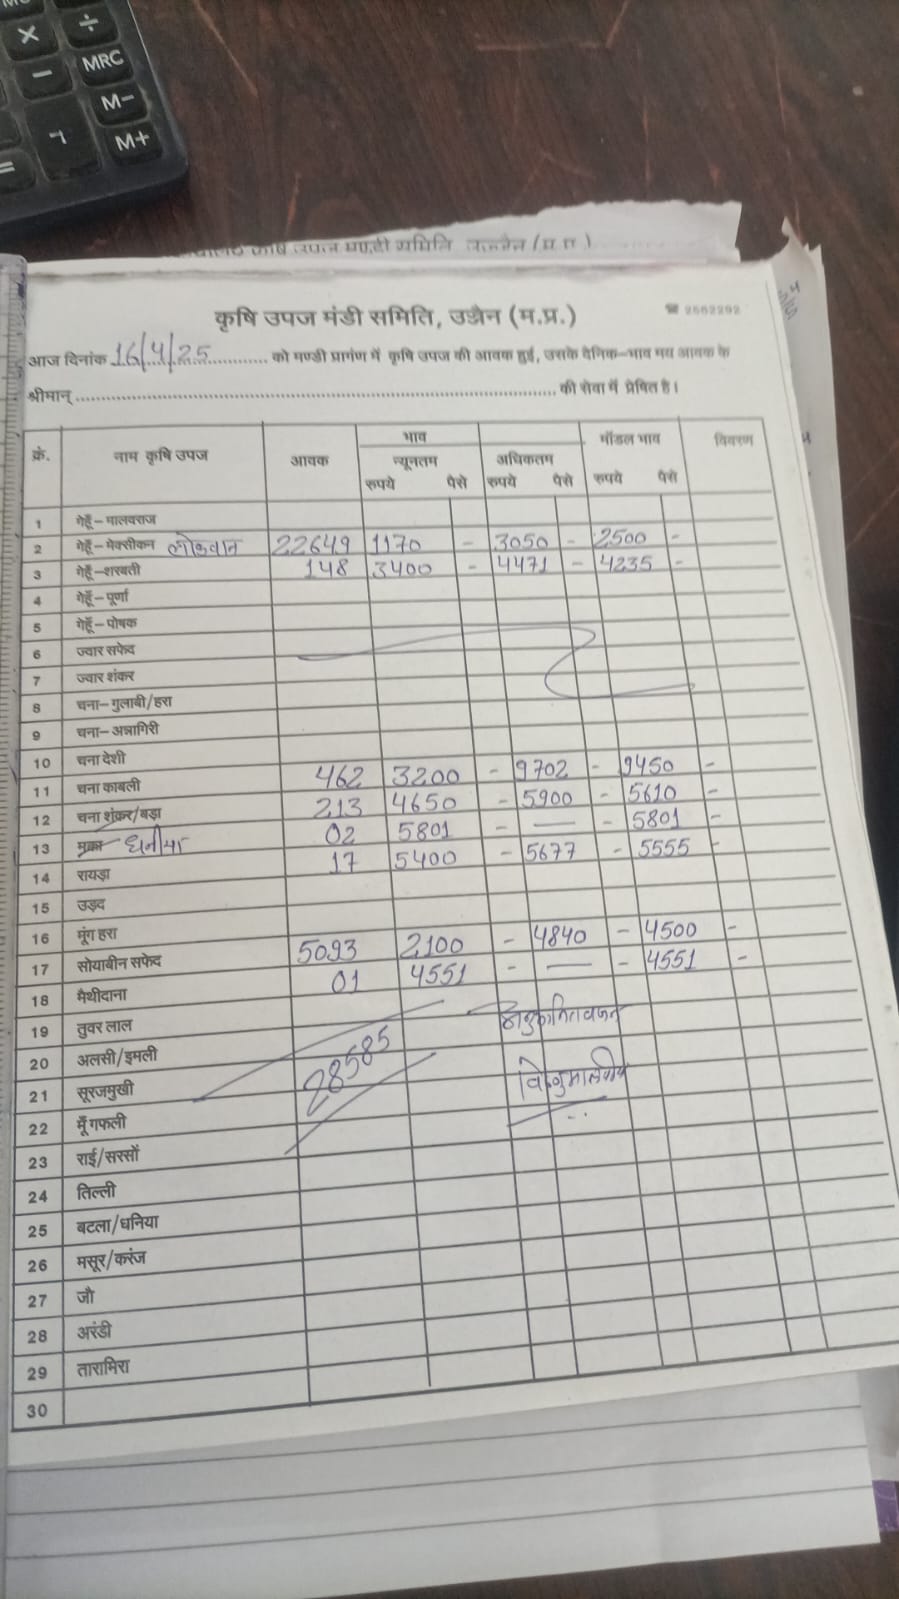 कृषि उपज मंडी समिति, उज्जैन (म.प्र.)
☎ 2562292
आज दिनांक 16/4/25 को मण्डी प्रागंण में कृषि उपज की आवक हुई, उसके दैनिक-भाव मय आवक के
श्रीमान् की सेवा में प्रेषित है।
क्रं. नाम कृषि उपज आवक भाव मॉडल भाव विवरण
न्यूनतम अधिकतम
रुपये पैसे रुपये पैसे रुपये पैसे
1 गेहूँ-मालवराज
2 गेहूँ-मेक्सीकन लोकवान 22649 1170 - 3050 - 2500 -
3 गेहूँ-शरबती 148 3400 - 4471 - 4235 -
4 गेहूँ-पूर्णा
5 गेहूँ-पोषक
6 ज्वार सफेद
7 ज्वार शंकर
8 चना-गुलाबी/हरा
9 चना-अन्नागिरी
10 चना देशी
11 चना काबली 462 3200 - 9702 - 9450 -
12 चना शंकर/बड़ा 213 4650 - 5900 - 5610 -
13 मक्का धनीया 02 5801 - — - 5801 -
14 रायड़ा 17 5400 - 5677 - 5555 -
15 उड़द
16 मूंग हरा
17 सोयाबीन सफेद 5093 2100 - 4840 - 4500 -
18 मैथीदाना 01 4551 - — - 4551 -
19 तुवर लाल
20 अलसी/इमली 28585
21 सूरजमुखी
22 मूँगफली
23 राई/सरसों
24 तिल्ली
25 बटला/धनिया
26 मसूर/करंज
27 जौ
28 अरंडी
29 तारामिरा
30
MRC
M-
M+